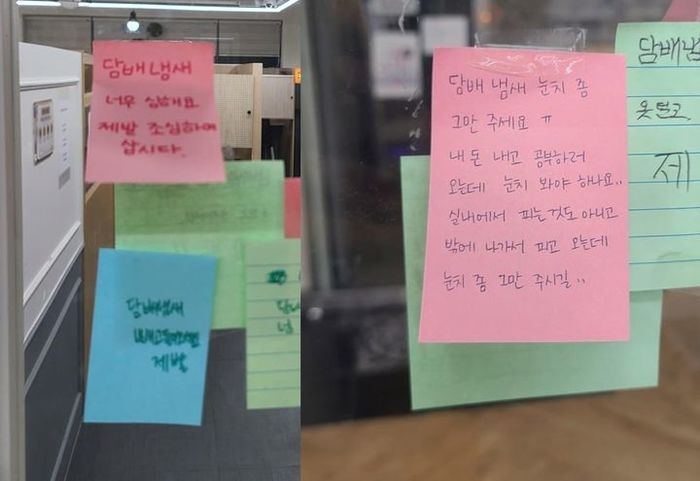 담배냄새
너무 심해요
제발 조심하며
삽시다.
담배냄새
제발
담배 냄새 눈치 좀
그만 주세요 ㅠ
내 돈 내고 공부하러
오는데 눈치 봐야 하나요..
실내에서 피는것도 아니고
밖에 나가서 피고 오는데
눈치 좀 그만 주시길..
담배냄
옷 털고
제